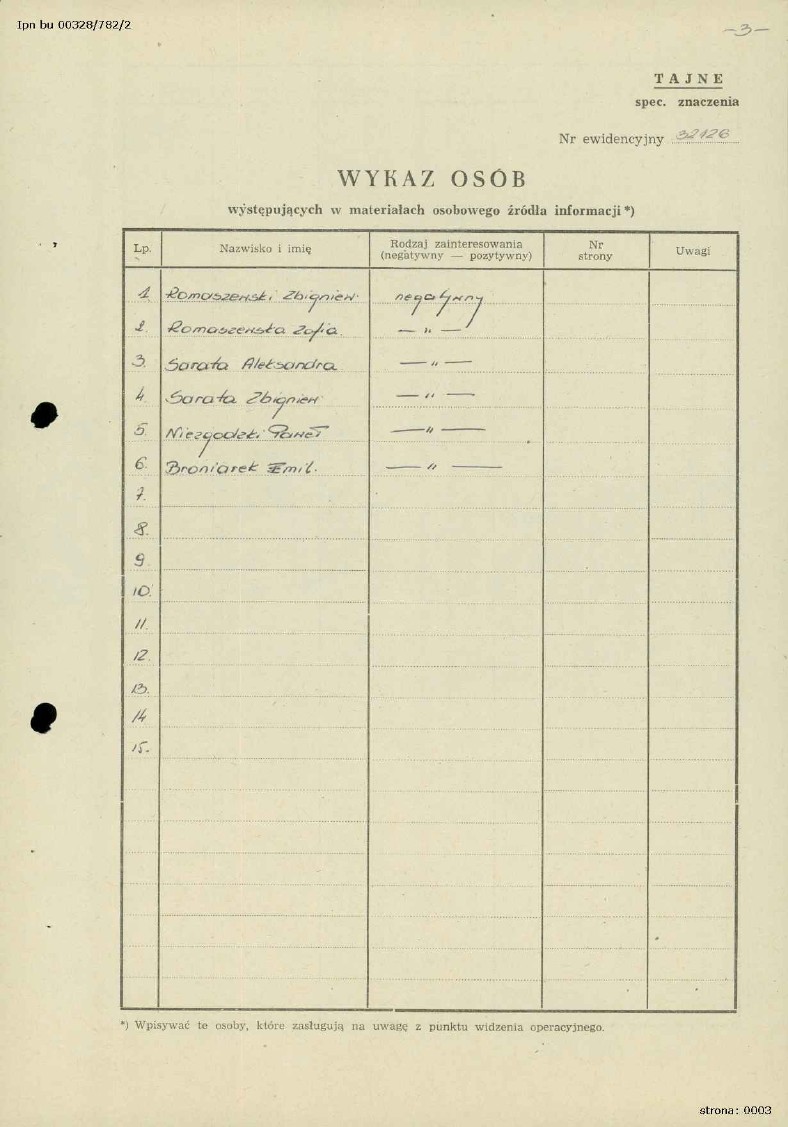 Ipn bu 00328/782/2
-3-
TAJNE
spec. znaczenia
Nr ewidencyjny 32126
WYKAZ OSÓB
występujących w materiałach osobowego źródła informacji *)
Lp. Nazwisko i imię Rodzaj zainteresowania (negatywny — pozytywny) Nr strony Uwagi
1. Romaszewski Zbigniew negatywny
2. Romaszewska Zofia — " —
3. Sarata Aleksandra — " —
4. Sarata Zbigniew — " —
5. Niezgodzki Paweł — " —
6. Broniarek Emil. — " —
7.
8.
9.
10.
11.
12.
13.
14
15.
*) Wpisywać te osoby, które zasługują na uwagę z punktu widzenia operacyjnego.
strona: 0003